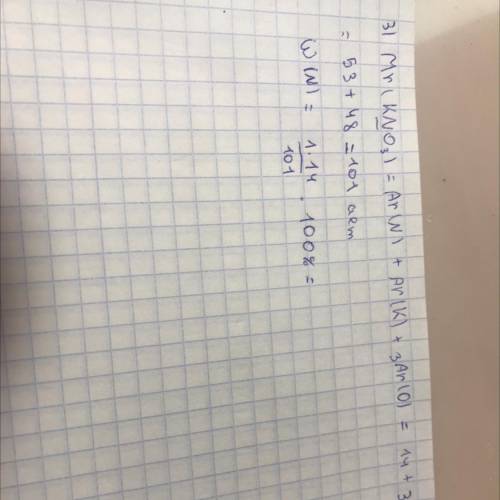 3) Mr(KNO₃) = Ar(N) + Ar(K) + 3Ar(O) = 14 + 3
= 53 + 48 = 101 аем
W(N) = 1·14/101 · 100% =